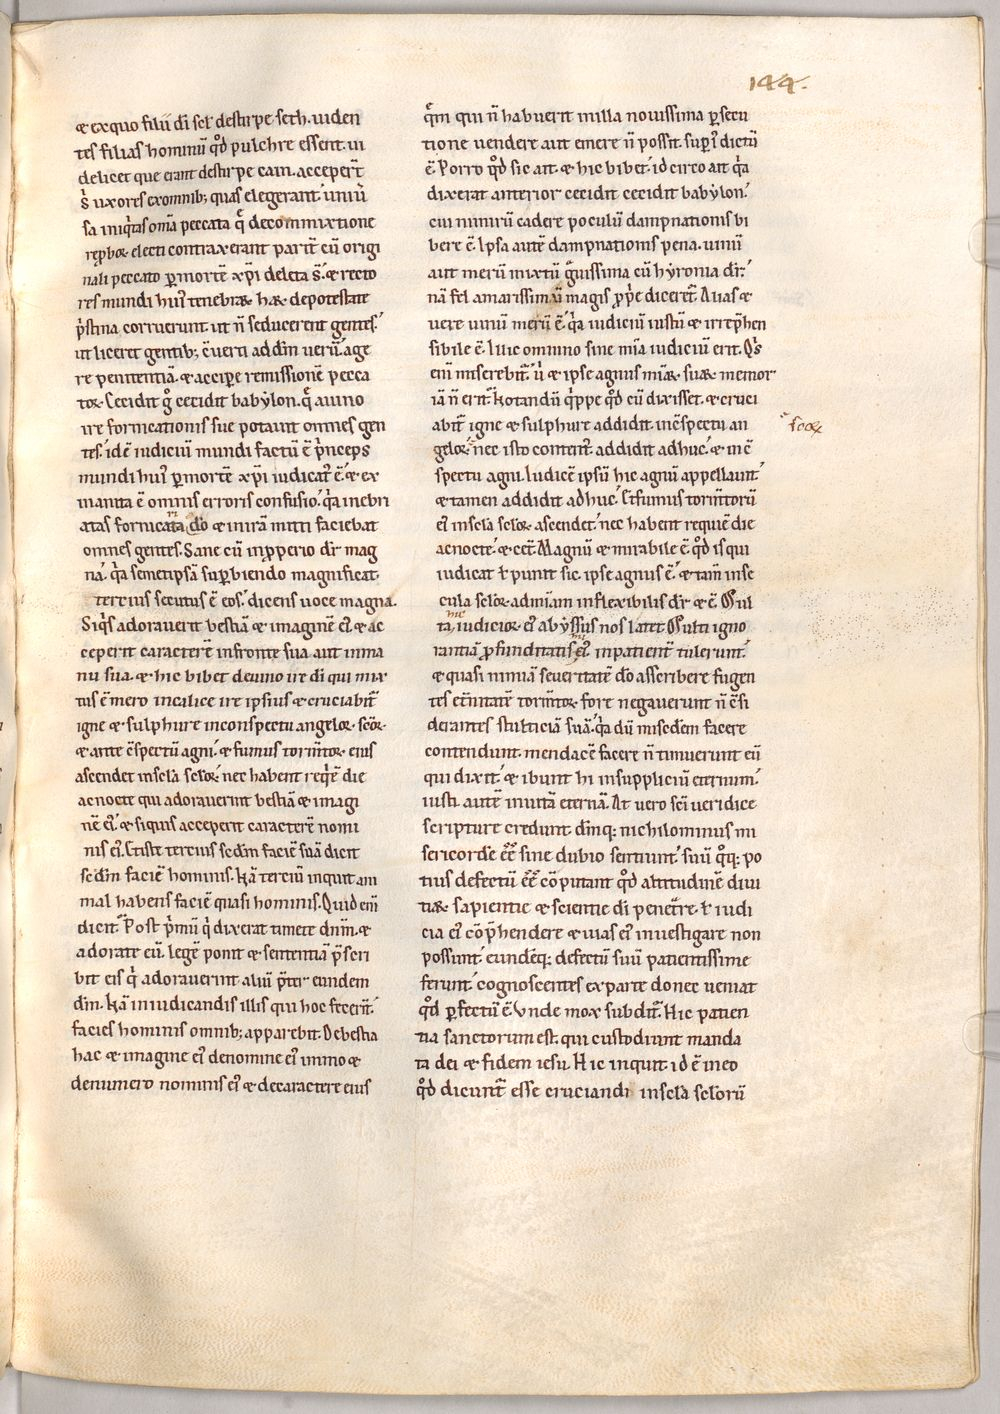 144.
æ ex quo filii dī scł de stirpe seth. uiden
tes filias hominū qđ pulchre essent. ui
delicet que erant de stirpe cain. acceper̄t
s̄ uxores ex omnib; quas elegerant. uniū
sa iniq̇tas om̄a peccata q̄ de commixtione
reꝓboꝝ electi contraxerant parit̄ cū origi
nali peccato ꝑ mortē xp̄i deleta s̄. æ recto
res mundi hui' tenebraꝝ haꝝ de potestate
p̄stina corruerunt. ut n̄ seducerent gentes.
ut liceret gentib; cuerti ad dm̄ uerū. age
re penitentiā. æ accipe remissionē pecca
toꝝ. Cecidit g̊ cecidit babylon. q̄ a uino
ire fornicationis sue potauit omnes gen
tes. idē iudiciū mundi factū ē p̄nceps
mundi hui' ꝑ mortē xp̄i iudicat' ē. æ ex
inanita ē omnis erroris confusio. q̇a inebri
atas fornicata dō æ in irā mitti faciebat
omnes gentes. Sane cū inꝓperio dr̄ mag
na. q̇a semetipsā suꝑbiendo magnificat.
tercius secutus ē eos. dicens uoce magna.
Siq̇s adorauerit bestiā æ imaginē ei' æ ac
ceperit caracterē in fronte sua aut in ma
nu sua. æ hic bibet de uino ire dī qui mix
tus ē mero in calice ire ipsius æ cruciabit̄
igne æ sulphure in conspectu angeloꝝ scōꝝ.
æ ante c̄spectū agni. æ fumus torm̄toꝝ eius
ascendet in scła scłoꝝ. nec habent req̇ē die
ac nocte qui adorauerint bestiā æ imagi
nē ei'. æ siquis acceperit caracterē nomi
nis ei'. Et iste tercius scdm̄ faciē suā dicit
scdm̄ faciē hominis. Nā terciū inquit ani
mal habens faciē quasi hominis. Quid eni
dicit̄. Post p̄mū q̇ dixerat timete dnm̄. æ
adorate eū. legē ponit æ sententiā p̄scri
bit eis q̇ adorauerint aliū p̄ter eundem
dm̄. Nā in iudicandis illis qui hoc fecer̄t.
facies hominis omnib; apparebit. De bestia
hac æ imagine ei' de nomine ei' immo æ
de numero nominis ei' æ de caractere eius
qm̄ qui n̄ habuerit in illa nouissima ꝑsecu
tione uendere aut emere n̄ possit. suꝑi' dictū
ē. Porro qđ sic ait. æ hic bibet. idcirco ait q̇a
dixerat anterior cecidit cecidit babylon.
cui nimirū cadere poculū dampnationis bi
bere ē. Ipsa autē dampnationis pena. uinū
aut merū mixtū g̊uissima cū hyronia dr̄.
nā fel amarissimū magis ꝓp̄e diceret̄. Alias æ
uere uinū merū ē. q̇a iudiciū iustū æ irrep̄hen
sibile ē. Illic omnino sine mīa iudiciū erit. Q̇s
eni miserebit̄. u̇ æ ipse agnus mīaꝝ suaꝝ memor
iā n̄ erit. Notandū q̇ppe qđ cū dixisset. æ cruci
abit̄ igne æ sulphure addidit. in c̄spectu an
geloꝝ. nec isto content'. addidit adhuc. æ in c̄
scōꝝ
spectu agni. Iudicē ipsū hic agnū appellauit.
æ tamen addidit adhuc. Et fumus torm̄torū
ei' in scła scłoꝝ ascendet. nec habent requiē die
ac nocte. æ cet̄. Magnū æ mirabile ē. qđ is qui
iudicat ł punit sic. ipse agnus ē. æ tam̄ in sc
cula scłoꝝ ad miam inflexibilis dr̄ æ ē. Mul
ta iudicioꝝ ei' abyssus nos latet. Multi igno
rantiā ꝓfunditatis ei' inpatient̄ tulerunt.
æ quasi nimiā seueritatē dō asscribere fugien
tes et̄nitatē torm̄toꝝ fore negauerunt n̄ c̄si
derantes stulticiā suā. q̇a dū misc̄dem facere
contendunt. mendacē facere n̄ timuerunt eū
qui dixit. æ ibunt hi in suppliciū eternum.
iusti autē in uitā eternā. At uero scī ueridice
scripture credunt. dm̄q; nichilominus mi
sericordē ēē sine dubio sentiunt. suū q̊q; po
tius defectū ēē cōputant qđ altitudinē diui
tiaꝝ sapientie æ scientie dī penet̄re. ł iudi
cia ei' cōp̄hendere æ uias ei' inuestigare non
possunt. eundēq; defectū suū patientissime
ferunt. cognoscentes ex parte donec ueniat
qđ ꝑfectū ē. Vnde mox subdit̄. Hic patien
tia sanctorum est. qui custodiunt manda
ta dei æ fidem iesu. Hic inquit id ē in eo
qđ dicunt̄ esse cruciandi in scła scłorū